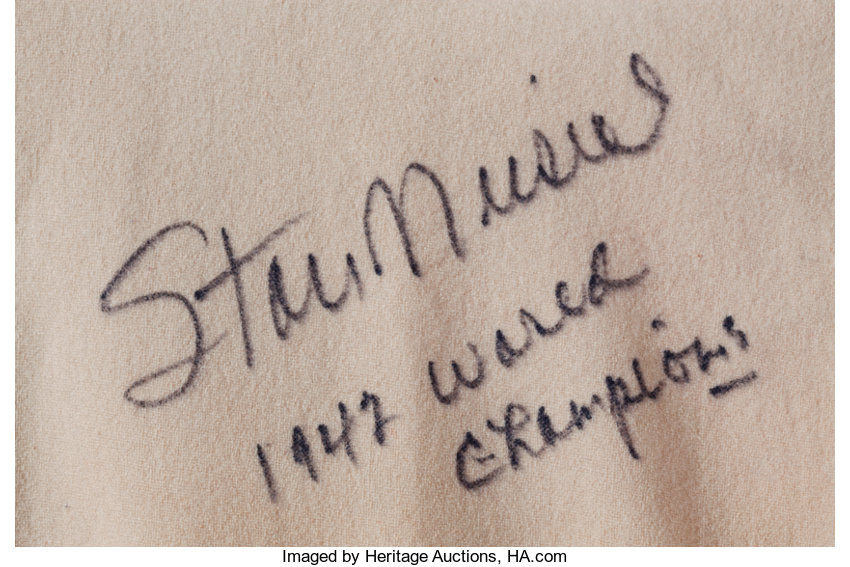 Stan Musial
1942 World
Champions
Imaged by Heritage Auctions, HA.com